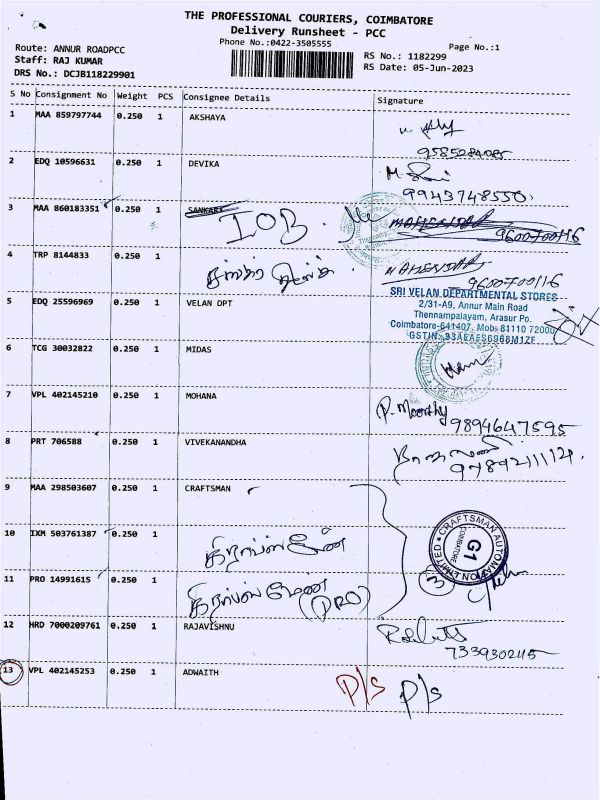 THE PROFESSIONAL COURIERS, COIMBATORE
Delivery Runsheet - PCC
Phone No.:0422-3505555
Page No.:1
Route: ANNUR ROADPCC
Staff: RAJ KUMAR
DRS No.: DCJB118229901
RS No.: 1182299
RS Date: 05-Jun-2023
S No Consignment No Weight PCS Consignee Details Signature
1 MAA 859797744 0.250 1 AKSHAYA
2 EDQ 10596631 0.250 1 DEVIKA
9943748550
3 MAA 860183351 0.250 1 SANKARI IOB
MAHENDAR
9600700116
4 TRP 8144833 0.250 1
MAHENDAR
9600700116
5 EDQ 25596969 0.250 1 VELAN DPT
SRI VELAN DEPARTMENTAL STORES
2/31-A9, Annur Main Road
Thennampalayam, Arasur Po.
Coimbatore-641407. Mob: 81110 72000
GSTIN: 33AEAFS6968M1ZF
6 TCG 30032822 0.250 1 MIDAS
7 VPL 402145210 0.250 1 MOHANA
P. Moorthy
9894647595
8 PRT 706588 0.250 1 VIVEKANANDHA
9 MAA 298503607 0.250 1 CRAFTSMAN
10 IXM 503761387 0.250 1
CRAFTSMAN AUTOMATION LIMITED
COIMBATORE
G1
3
11 PRO 14991615 0.250 1 (PRO)
12 HRD 7000209761 0.250 1 RAJAVISHNU
7339302115
13 VPL 402145253 0.250 1 ADWAITH P/S P/S